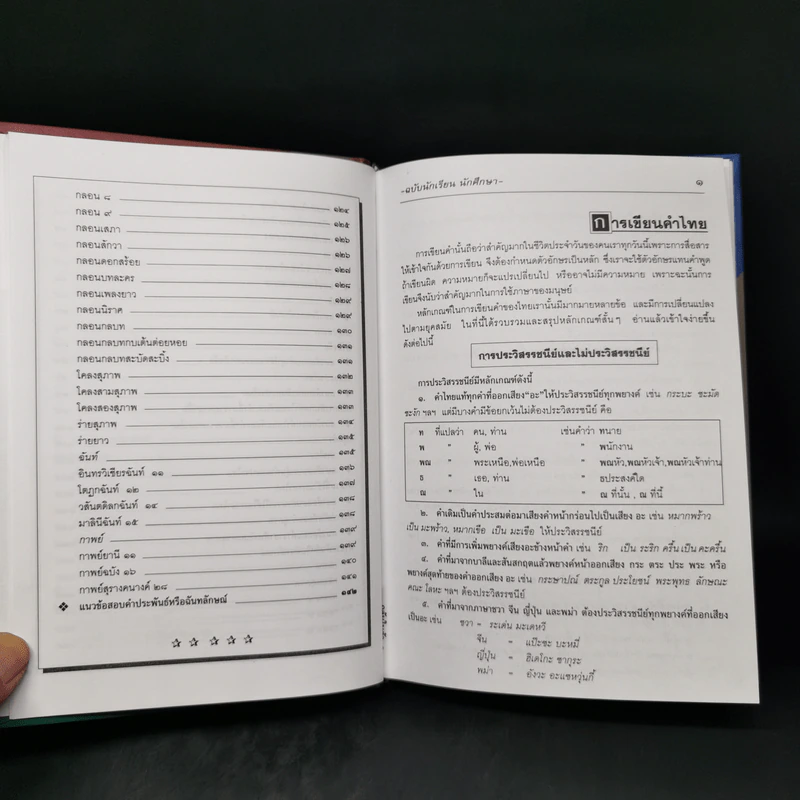 กลอน ๘ ๑๒๔
กลอน ๙ ๑๒๕
กลอนเสภา ๑๒๖
กลอนสักวา ๑๒๖
กลอนดอกสร้อย ๑๒๗
กลอนบทละคร ๑๒๘
กลอนเพลงยาว ๑๒๙
กลอนนิราศ ๑๒๙
กลอนกลบท ๑๓๐
กลอนกลบทกบเต้นต่อยหอย ๑๓๑
กลอนกลบทสะบัดสะบิ้ง ๑๓๑
โคลงสุภาพ ๑๓๒
โคลงสามสุภาพ ๑๓๓
โคลงสองสุภาพ ๑๓๓
ร่ายสุภาพ ๑๓๔
ร่ายยาว ๑๓๕
ฉันท์ ๑๓๕
อินทรวิเชียรฉันท์ ๑๑ ๑๓๖
โตฎกฉันท์ ๑๒ ๑๓๗
วสันตดิลกฉันท์ ๑๔ ๑๓๘
มาลินีฉันท์ ๑๕ ๑๓๘
กาพย์ ๑๓๙
กาพย์ยานี ๑๑ ๑๓๙
กาพย์ฉบัง ๑๖ ๑๔๐
กาพย์สุรางคนางค์ ๒๘ ๑๔๑
❖ แนวข้อสอบคำประพันธ์หรือฉันทลักษณ์ ๑๔๒
-ฉบับนักเรียน นักศึกษา- ๑
การเขียนคำไทย
การเขียนคำนั้นถือว่าสำคัญมากในชีวิตประจำวันของคนเราทุกวันนี้เพราะการสื่อสาร
ให้เข้าใจกันด้วยการเขียน จึงต้องกำหนดตัวอักษรเป็นหลัก ซึ่งเราจะใช้ตัวอักษรแทนคำพูด
ถ้าเขียนผิด ความหมายก็จะแปรเปลี่ยนไป หรืออาจไม่มีความหมาย เพราะฉะนั้นการ
เขียนจึงนับว่าสำคัญมากในการใช้ภาษาของมนุษย์
หลักเกณฑ์ในการเขียนคำของไทยเรานั้นมีมากมายหลายข้อ และมีการเปลี่ยนแปลง
ไปตามยุคสมัย ในที่นี้ได้รวบรวมและสรุปหลักเกณฑ์สั้น ๆ อ่านแล้วเข้าใจง่ายขึ้น
ดังต่อไปนี้
การประวิสรรชนีย์และไม่ประวิสรรชนีย์
การประวิสรรชนีย์มีหลักเกณฑ์ดังนี้
๑. คำไทยแท้ทุกคำที่ออกเสียง "อะ" ให้ประวิสรรชนีย์ทุกพยางค์ เช่น กระบะ ชะมัด
ชะงัก ฯลฯ แต่มีบางคำมีข้อยกเว้นไม่ต้องประวิสรรชนีย์ คือ
ท ที่แปลว่า คน, ท่าน เช่นคำว่า ทนาย
พ " ผู้, พ่อ " พนักงาน
พณ " พระเหนือ,พ่อเหนือ " พณหัว,พณหัวเจ้า,พณหัวเจ้าท่าน
ธ " เธอ, ท่าน " ธประสงค์ใด
ณ " ใน " ณ ที่นั้น , ณ ที่นี้
๒. คำเดิมเป็นคำประสมต่อมาเสียงคำหน้ากร่อนไปเป็นเสียง อะ เช่น หมากพร้าว
เป็น มะพร้าว, หมากเขือ เป็น มะเขือ ให้ประวิสรรชนีย์
๓. คำที่มีการเพิ่มพยางค์เสียงอะข้างหน้าคำ เช่น ริก เป็น ระริก ครื้น เป็น คะครื้น
๔. คำที่มาจากบาลีและสันสกฤตแล้วพยางค์หน้าออกเสียง กระ ตระ ประ พระ หรือ
พยางค์สุดท้ายของคำออกเสียง อะ เช่น กระษาปณ์ ตระกูล ประโยชน์ พระพุทธ ลักษณะ
คณะ โลหะ ฯลฯ ต้องประวิสรรชนีย์
๕. คำที่มาจากภาษาชวา จีน ญี่ปุ่น และพม่า ต้องประวิสรรชนีย์ทุกพยางค์ที่ออกเสียง
เป็นอะ เช่น ชวา = ระเด่น มะเดหวี
จีน = แป๊ะซะ บะหมี่
ญี่ปุ่น = ฮิเดโกะ ซากุระ
พม่า = อังวะ อะแซหวุ่นกี้